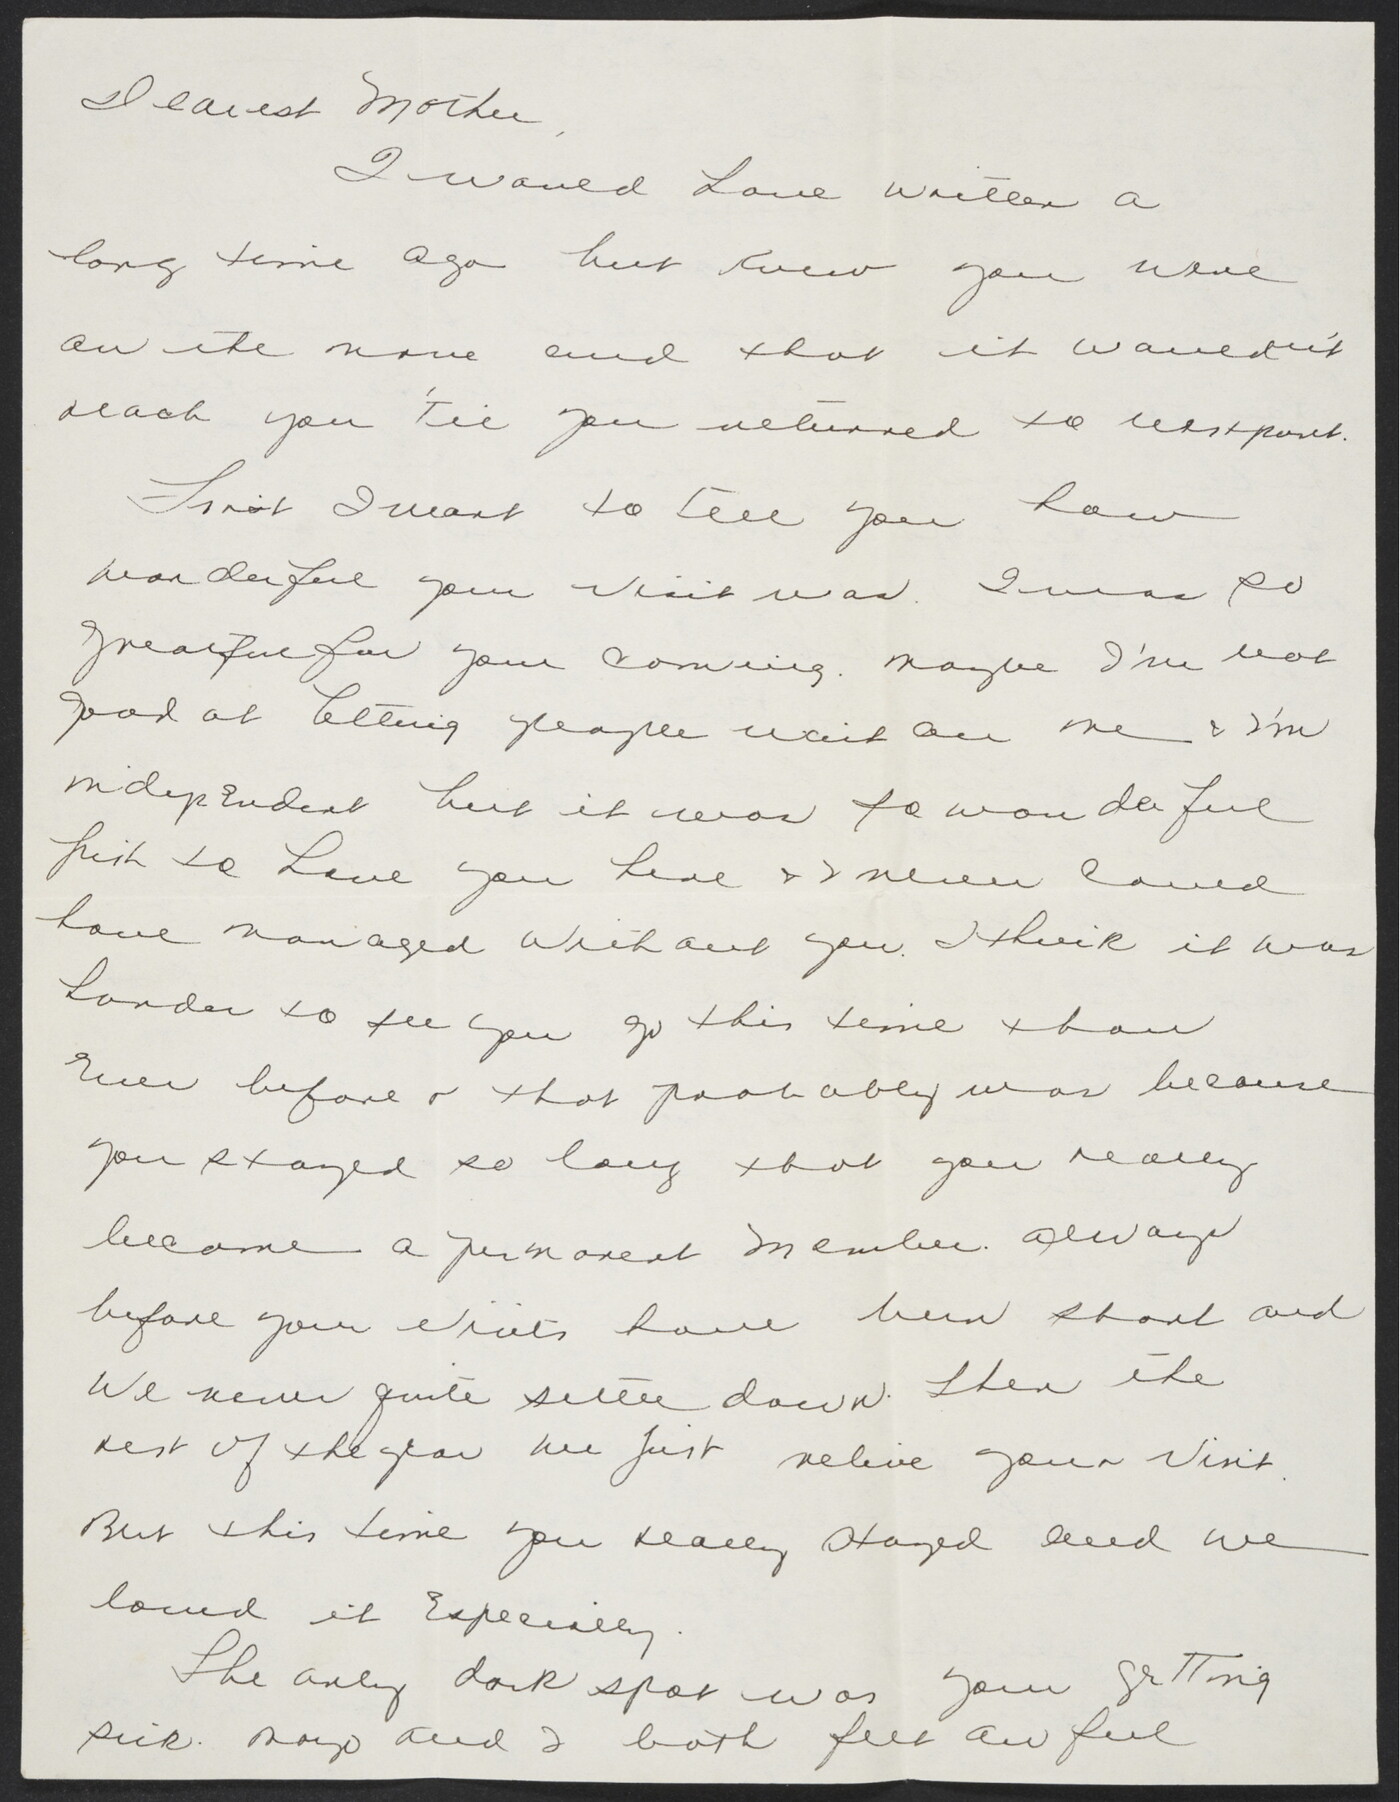 Dearest Mother,
I would have written a
long time ago but knew you were
on the move and that it wouldn't
reach you 'til you returned to Westport.
First I want to tell you how
wonderful your visit was. I was so
greatful for your coming. Maybe I'm not
good at letting people wait on me & I'm
independent but it was so wonderful
just to have you here & I never could
have managed without you. I think it was
harder to see you go this time than
Ever before & that probably was because
you stayed so long that you really
became a permanent member. Always
before your visits have been short and
we never quite settle down. Then the
rest of the year we just relive your visit.
But this time you really stayed and we
loved it Especially.
The only dark spot was your getting
sick. and I both felt awful